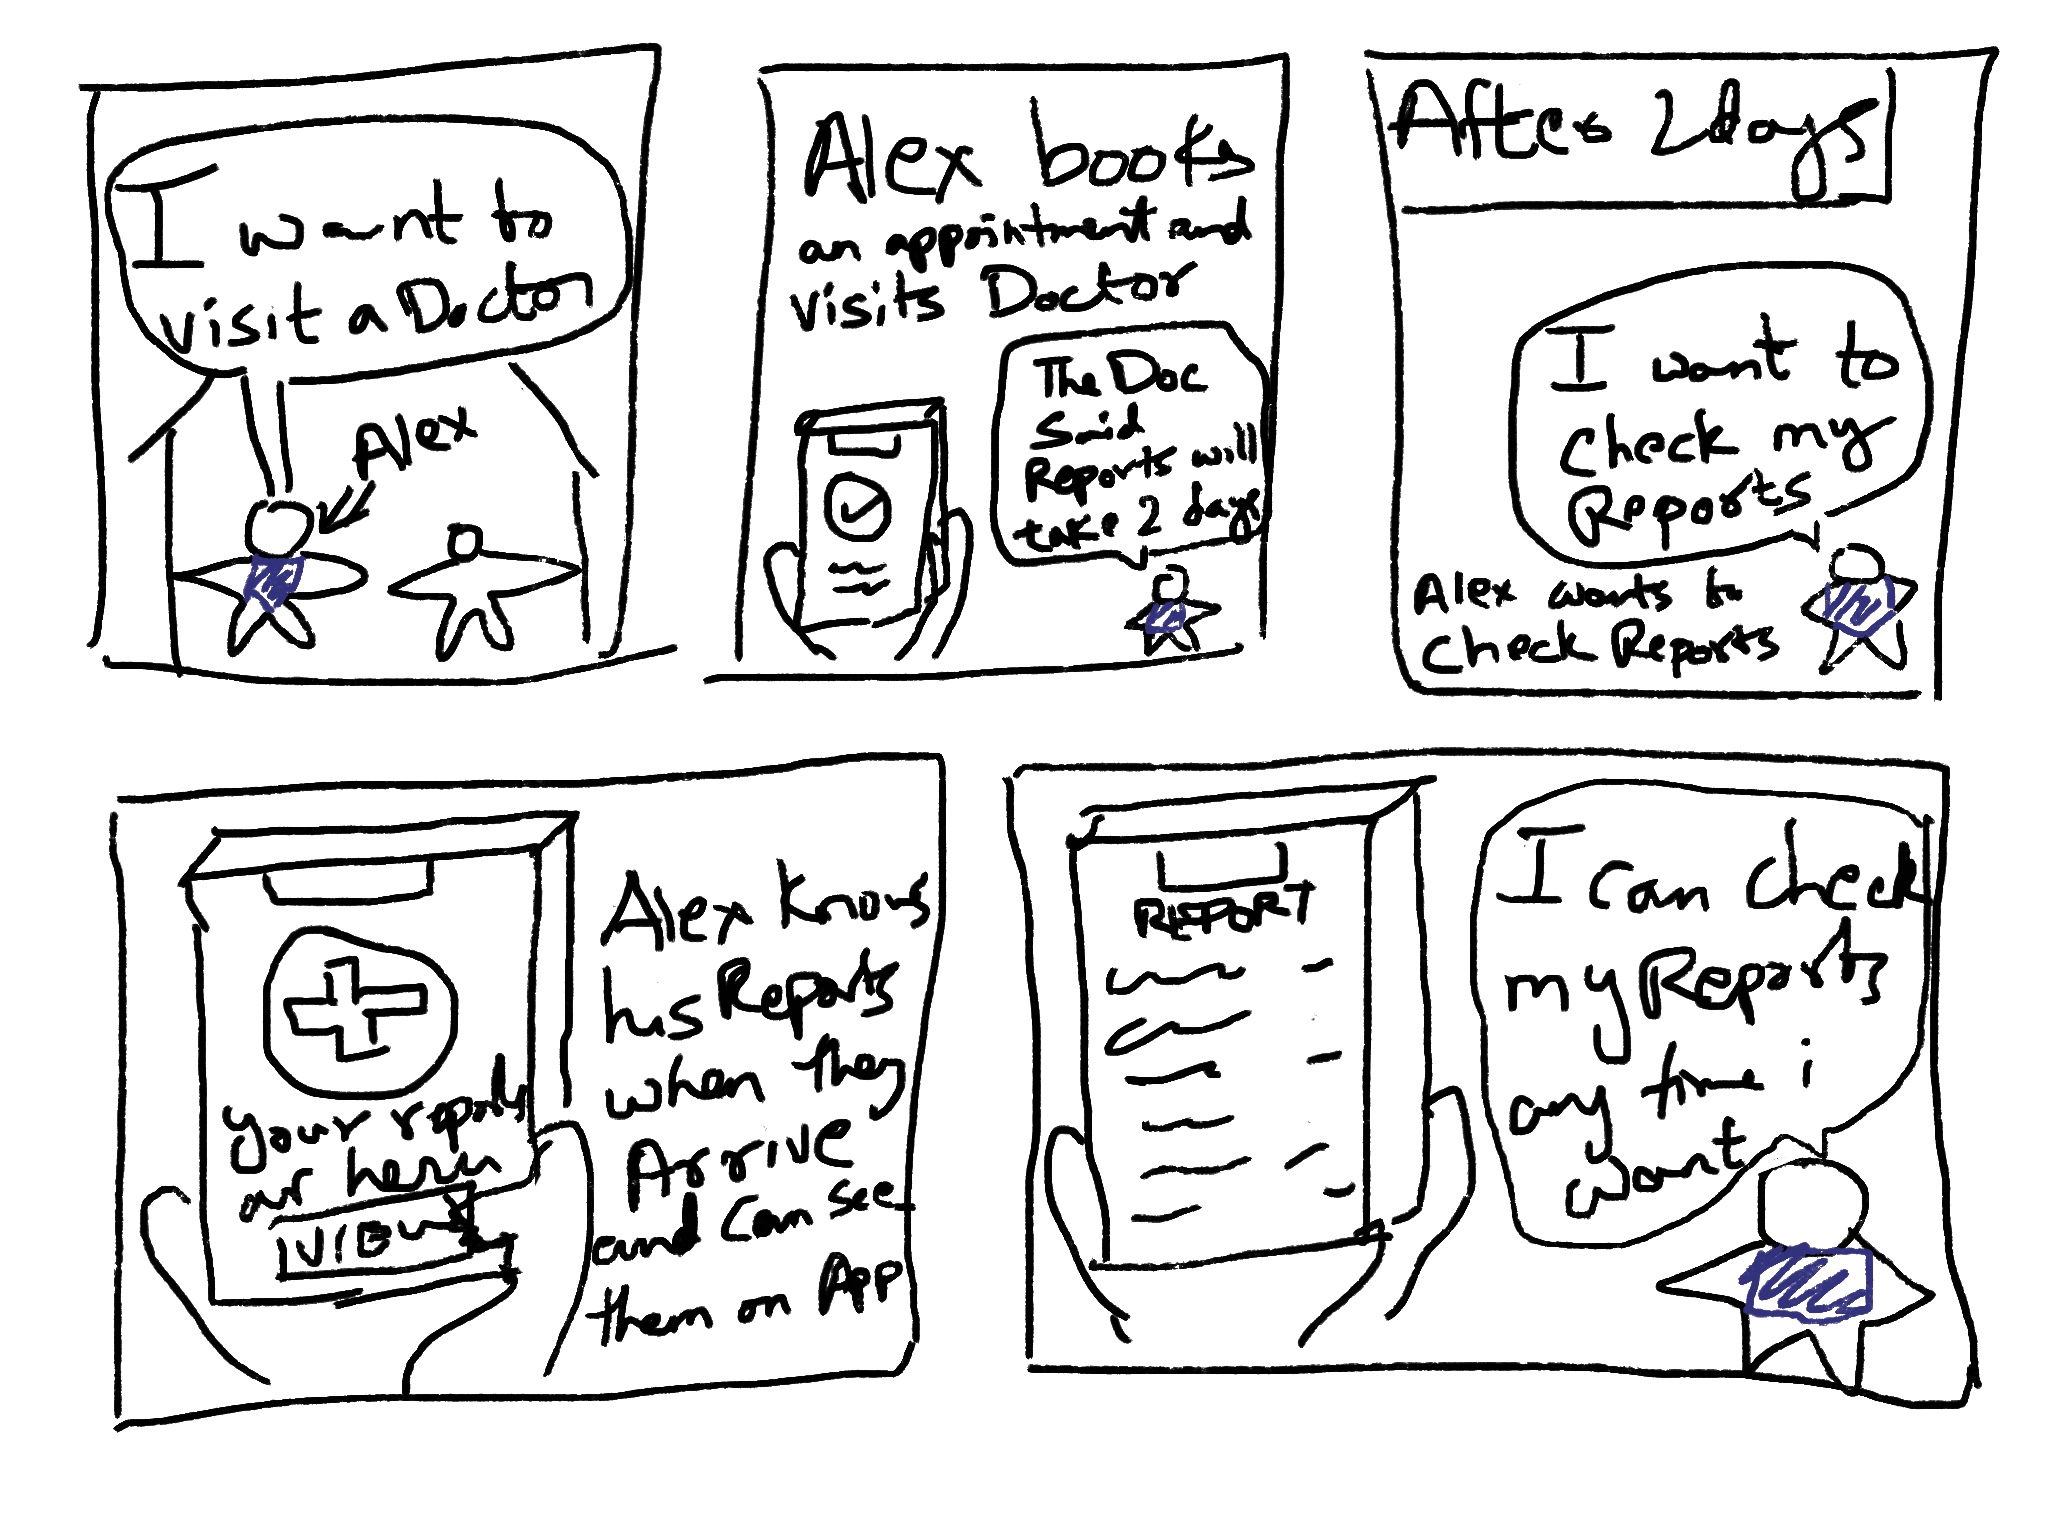 I want to
visit a Doctor
Alex
Alex books
an appointment and
visits Doctor
The Doc
Said
Reports will
take 2 days
After 2 days
I want to
check my
Reports
Alex wants to
check Reports
your reports
ar here
VIEW
Alex Knows
his Reports
when they
Arrive
and can see
them on App
REPORT
I can check
my Reports
any time i
want